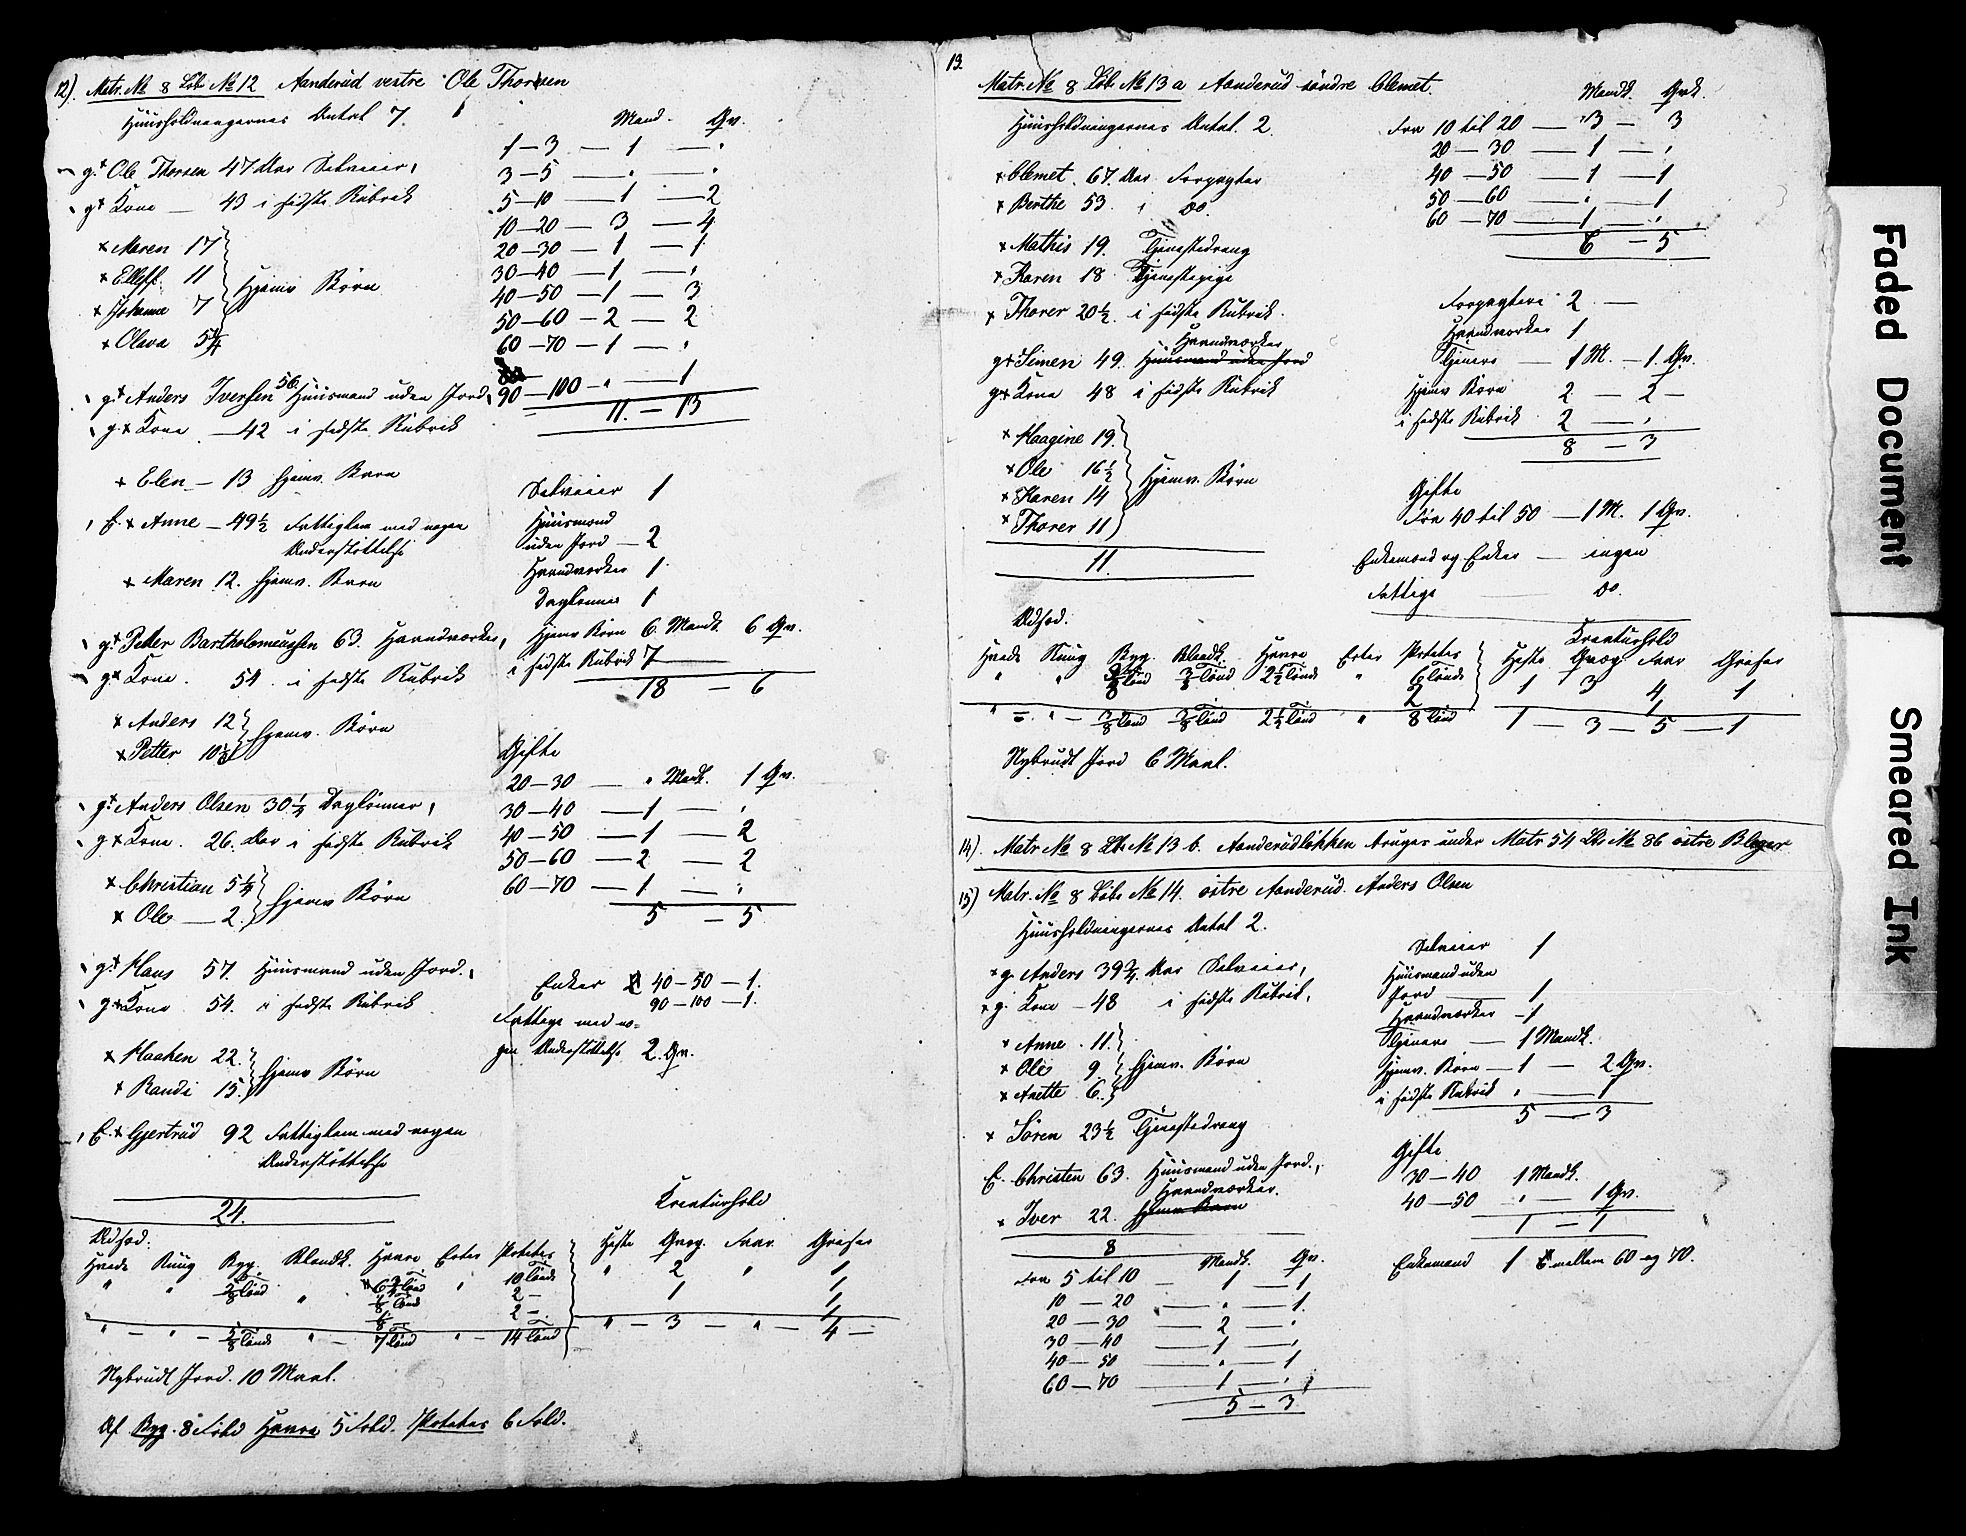 12). Matr. № 8 Løb. № 12 Aanderud vestre Ole Thorsen
Huusholdningernes Antal 7.
g. + Ole Thorsen 47 Aar Selveier,
g + Kone — 43 i sidste Rubrik
+ Maren 17
+ Elleff. 11
+ Johanne 7
+ Olava 5 1/4
Hjemv Børn
g. + Anders Iversen 56 Huusmand uden Jord,
g. + Kone — 42 i sidste Rubrik
+ Elen — 13 hjemv. Barn
E. + Anne — 49 1/2 Fattiglem med nogen
Understøttelse
+ Maren 12. hjemv. Barn
g + Petter Bartholomeussen 63. Haandværker,
g + Kone. 54 i sidste Rubrik
+ Anders 12
+ Petter 10 1/2
hjemv. Børn
g. + Anders Olsen 30 1/4 Daglønner,
g + Kone. 26. Aar i sidste Rubrik
+ Christian 5 1/4
+ Ole — 2.
hjemv Børn
g. + Hans 57. Huusmand uden Jord.
g. + Kone 54. i sidste Rubrik
+ Haaken 22.
+ Randi 15.
hjemv Børn
E. + Gjertrud 92 Fattiglem med nogen
Understøttelse
24.
Mand. Qv.
1 — 3 — 1 — "
3 — 5 — " — "
5 — 10 — 1 — 2
10 — 20 — 3 — 4
20 — 30 — 1 — 1
30 — 40 — 1 — "
40 — 50 — 1 — 3
50 — 60 — 2 — 2
60 — 70 — 1 — "
90 — 100 — " — 1
11. — 13
Selveier 1
Huusmand
uden Jord — 2
Haandværker 1
Daglønner 1
Hjemv Børn 6. Mandk. 6 Qv.
i sidste Rubrik 7
18 — 6
Gifte
20 — 30 — " Mandk. 1 Qv.
30 — 40 — 1 — "
40 — 50 — 1 — 2
50 — 60 — 2 — 2
60 — 70 — 1 — "
5 — 5
Enker 40 — 50 — 1.
90 — 100 — 1.
Fattige med no=
gen Understøttelse 2. Qv.
Udsæd. Kreaturhold
Hvede Ruug Byg. Blandk. Havre Erter Poteter Heste Qvæg. Faar. Griser
" " 5/8 Tønde " 6 3/4 Tønd " 10 Tønde " 2 " 1
1/8 Tønd 2 — 1 1
1/8 2 — 1
" — " — 5/8 Tønde " — 7 Tønd " — 14 Tønd " — 3 — " — 4 —
Nybrudt Jord. 10 Maal.
Af Byg. 8 Fold Havre 5 Fold. Poteter 6 Fold.
13.
Matr. № 8 Løb. № 13 a Aanderud søndre Clemet.
Huusholdningernes Antal. 2.
+ Clemet. 67. Aar Forpagter
+ Berthe 53. i Do.
+ Mathis 19. Tjenestedreng
+ Karen 18 Tjenestepige
+ Thorer 20 1/2. i sidste Rubrik.
Haandværker
g + Simen 49. Huusmand uden Jord
g + Kone 48 i sidste Rubrik
+ Haagine 19.
+ Ole 16 1/2
+ Karen 14
+ Thorer 11
Hjemv. Børn
11.
Mandk. Qvk.
Fra 10 til 20 — 3 — 3
20 — 30 — 1 — "
40 — 50 — 1 — 1
50 — 60 — " — 1
60 — 70 — 1 — "
6 — 5
Forpagtere 2 —
Haandværker 1
Tjenere — 1 M. — 1. Qv.
Hjemv Børn 2 — 2 —
i sidste Rubrik 2 — "
8 — 3
Gifte
Fra 40 til 50 — 1 M. 1 Qv.
Enkemænd og Enker — ingen
Fattige — Do.
Udsæd. Kreaturhold
Hvede Ruug Byg. Blandk. Havre Erter Poteter Heste Qvæg Faar Griser
" " 3/8 Tønd 3/8 Tønd 2 1/2 Tønde " 6 Tønde 1 3 4 1
2 1
" — " — 3/8 Tønd 3/8 Tønd 2 1/2 Tønd " 8 Tønd 1 — 3 — 5 — 1
Nybrudt Jord 6 Maal.
14). Matr № 8 Lb. № 13 b. Aanderudløkken bruges under Matr 54 Lb. № 86 østre
15) Matr. № 8 Løb. № 14. østre Aanderud. Anders Olsen
Huusholdningernes Antal 2.
+ g. Anders 39 3/4. Aar Selveier,
+ g. Kone — 48 i sidste Rubrik,
+ Anne. 11.
+ Ole 9.
+ Anette 6.
hjemv. Børn
+ Søren 23 1/2 Tjenestedreng
E. Christen 63. Huusmand uden Jord.,
Haandværker.
+ Iver 22. hjemv Barn
8
Mandk. Qv.
Fra 5 til 10 — 1 — 1
10 — 20 — " — 1.
20 — 30 — 2 — "
30 — 40 — 1 — "
40 — 50 — " — 1
60 — 70 — 1 — "
5 — 3
Selveier 1
Huusmand uden
Jord — 1
Haandværker — 1
Tjenere — 1 Mandk.
Hjemv. Børn — 1 — 2 Qv.
i sidste Rubrik " — 1
5 — 3
Gifte
30 — 40 1 Mandk.
40 — 50 " — 1 Qv.
1 — 1
Enkemand 1 mellem 60 og 70.
Faded Document
Smeared Ink